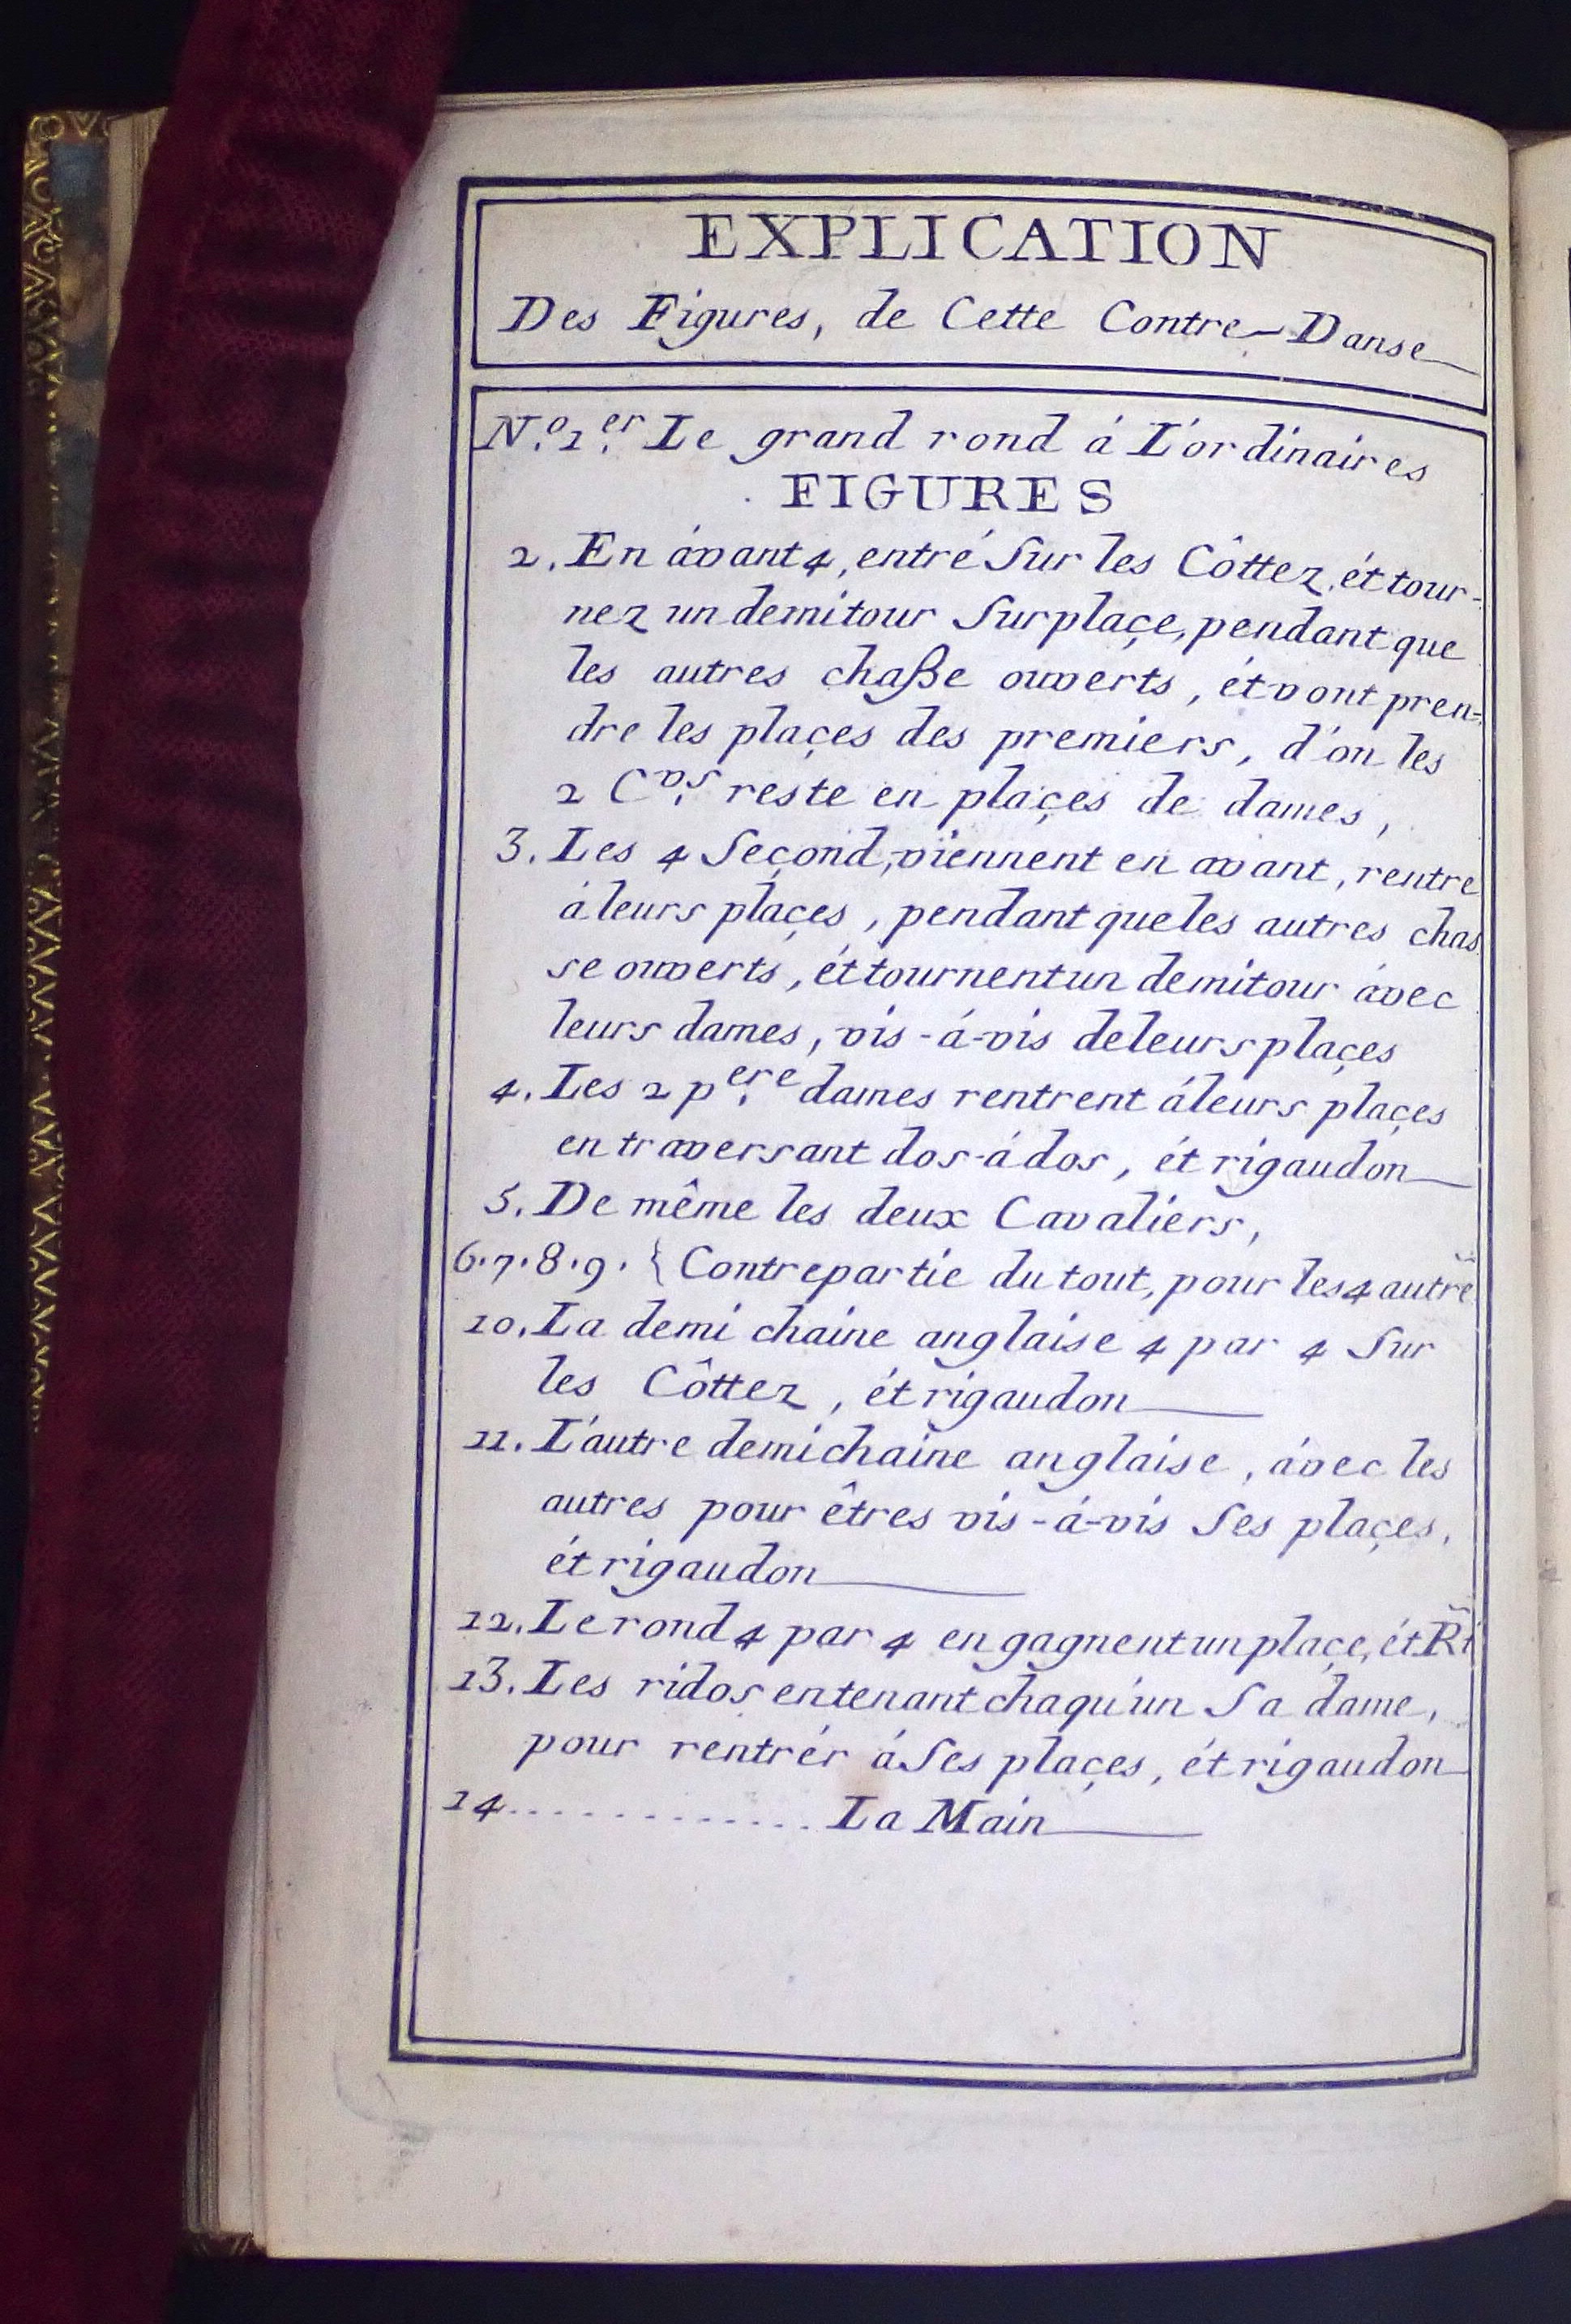 EXPLICATION
Des Figures, de Cette Contre-Danse
N.º 1.er Le grand rond á L'ordinaires
FIGURES
2. En ávant 4, entré Sur les Côttez, ét tour-
nez un demitour Surplaçe, pendant que
les autres chaße ouverts, ét vont pren=
dre les plaçes des premiers, d'on les
2 C.vs reste en plaçes de dames,
3. Les 4 Seçond, viennent en avant, rentre
á leurs plaçes, pendant que les autres chas
se ouverts, ét tournent un demitour ávec
leurs dames, vis-á-vis de leurs plaçes
4. Les 2 p.ere dames rentrent á leurs plaçes
en traversant dos-á dos, ét rigaudon
5. De même les deux Cavaliers,
6.7.8.9. { Contrepartie du tout, pour les 4 autre
10. La demi chaine anglaise 4 par 4 Sur
les Côttez, ét rigaudon
11. L'autre demi chaine anglaise, ávec les
autres pour êtres vis-á-vis Ses plaçes,
ét rigaudon
12. Le rond 4 par 4 en gagnent un plaçe, ét Rt
13. Les ridos en tenant chaqu'un Sa dame,
pour rentrér á Ses plaçes, ét rigaudon
14............. La Main